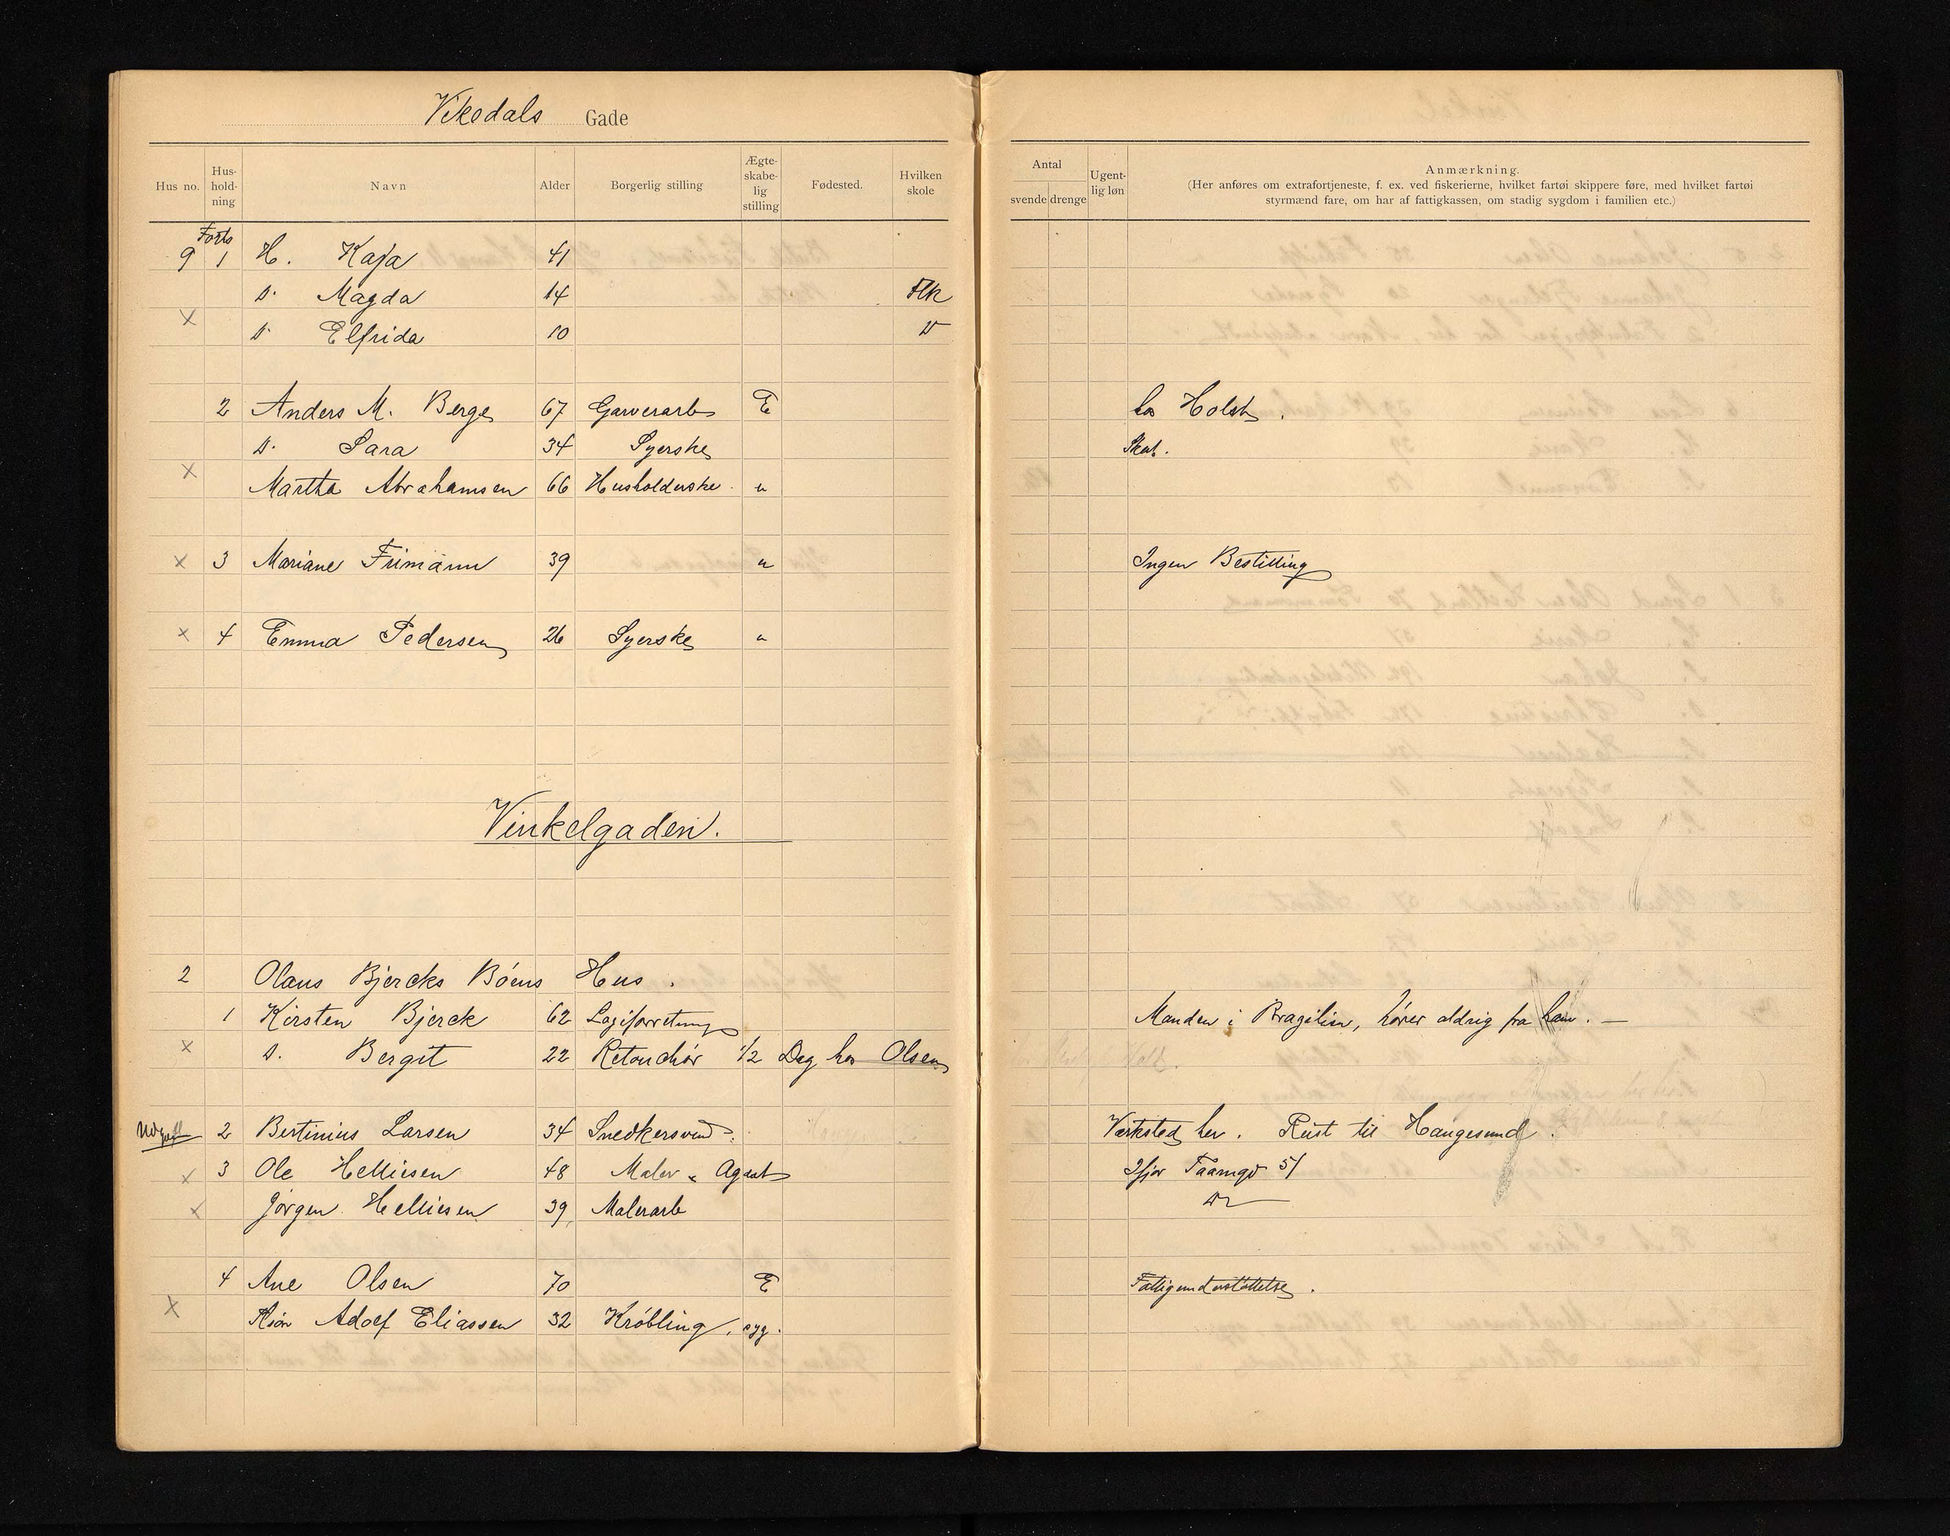 Vikedals Gade
Hus no. Hus-hold-ning Navn Alder Borgerlig stilling Ægte-skabe-lig stilling Fødested. Hvilken skole
Antal svende drenge Ugent-lig løn Anmærkning.
(Her anføres om extrafortjeneste, f. ex. ved fiskerierne, hvilket fartøi skippere føre, med hvilket fartøi
styrmænd fare, om har af fattigkassen, om stadig sygdom i familien etc.)
Forts
9 1 H. Kaja 41
D. Magda 14 Flk
x D. Elfrida 10 D
2 Anders M. Berge 67 Garverarb E hos Holst.
D. Sara 34 Syerske Skat.
x Martha Abrahamsen 66 Husholderske. u
x 3 Mariane Frimann 39 u Ingen Bestilling
x 4 Emma Pedersen 26 Syerske u
Vinkelgaden.
2 Olaus Bjercks Böens Hus.
1 Kirsten Bjerck 62 Logiforretning Manden i Bragilien, hører aldrig fra ham. —
x D. Bergit 22 Retouchör 1/2 Dag hos Olsen
2 Bertinius Larsen 34 Snedkersvend. Værksted her. Reist til Haugesund.
x 3 Ole Helliesen 48 Maler Agent Ifjor 51
x Jørgen Helliesen 39, Malerarb Do
4 Ane Olsen 70 E Fattigunderstøttelse.
x Adolf Eliassen 32 Krøbling, syg.